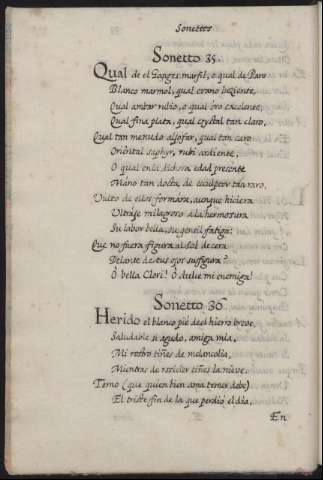 Sonettos
Sonetto 35.
Qual de el Ganges marfil, o qual de Paro
Blanco marmol, qual evano luziente,
Qual ambar rubio, o qual oro excelente,
Qual fina plata, qual crystal tan claro,
Qual tan menudo aljofar, qual tan caro
Oriental saphyr, rubi ardiente,
O qual en la dichosa edad presente
Mano tan docta de esculptor tan raro,
Vulto de ellos formara, aunque hiciera
Ultraje milagroso a la hermosura
Su labor bella, su gentil fatiga:
Que no fuera figura al sol de cera
Delante de tus ojos su figura?
O bella Clori! O dulce mi enemiga!
Sonetto 36
Herido el blanco pie de el hierro breve,
Saludable si agudo, amiga mia,
Mi rostro tiñes de melancolia,
Mientras de rosicler tiñes la nieve.
Temo (que quien bien ama temer debe)
El triste fin de la que perdió el dia,
En